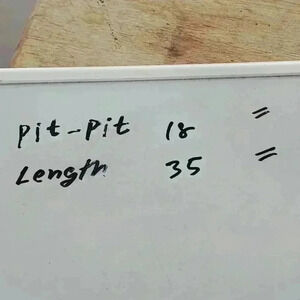 Pit-Pit 18 "
Length 35 "